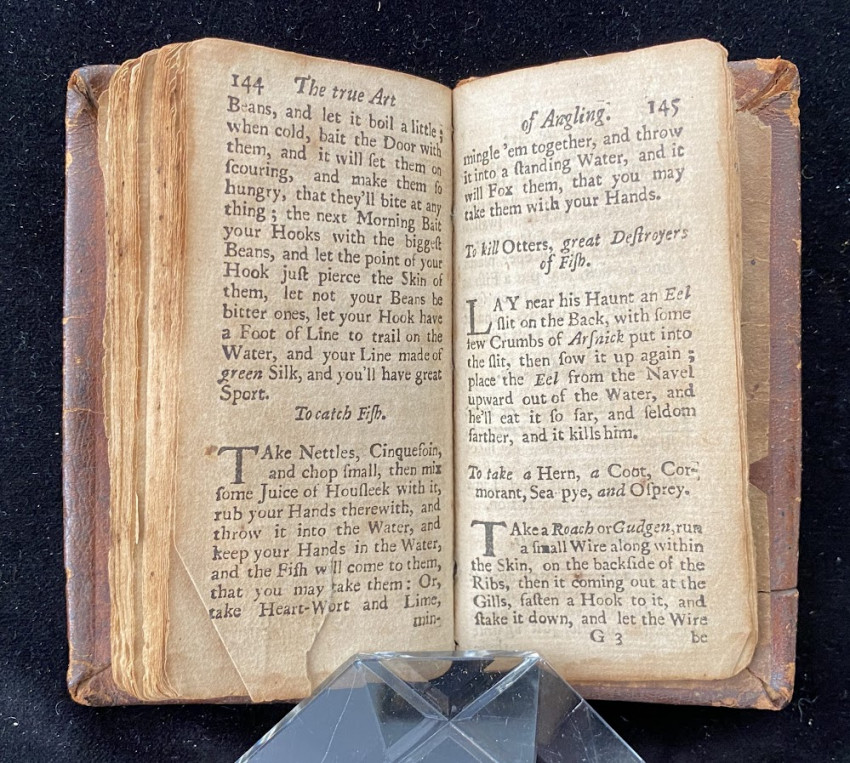 144 The true Art
Beans, and let it boil a little ;
when cold, bait the Door with
them, and it will ſet them on
ſcouring, and make them ſo
hungry, that they'll bite at any
thing ; the next Morning Bait
your Hooks with the biggeſt
Beans, and let the point of your
Hook juſt pierce the Skin of
them, let not your Beans be
bitter ones, let your Hook have
a Foot of Line to trail on the
Water, and your Line made of
green Silk, and you'll have great
Sport.
To catch Fiſh.
TAke Nettles, Cinquefoin,
and chop ſmall, then mix
ſome Juice of Houſleek with it,
rub your Hands therewith, and
throw it into the Water, and
keep your Hands in the Water,
and the Fiſh will come to them,
that you may take them: Or,
take Heart-Wort and Lime,
min-
of Angling. 145
mingle 'em together, and throw
it into a ſtanding Water, and it
will Fox them, that you may
take them with your Hands.
To kill Otters, great Deſtroyers
of Fiſh.
LAY near his Haunt an Eel
ſlit on the Back, with ſome
few Crumbs of Arſnick put into
the ſlit, then ſow it up again ;
place the Eel from the Navel
upward out of the Water, and
he'll eat it ſo far, and ſeldom
farther, and it kills him.
To take a Hern, a Coot, Cor-
morant, Sea pye, and Oſprey.
TAke a Roach or Gudgen, run
a ſmall Wire along within
the Skin, on the backſide of the
Ribs, then it coming out at the
Gills, faſten a Hook to it, and
ſtake it down, and let the Wire
G 3 be